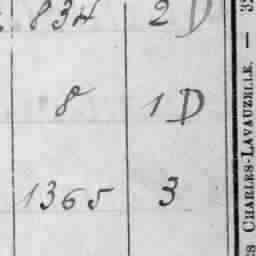 834 2 D
8 1 D
1365 3
CHARLES-LAVAUZELLE. —